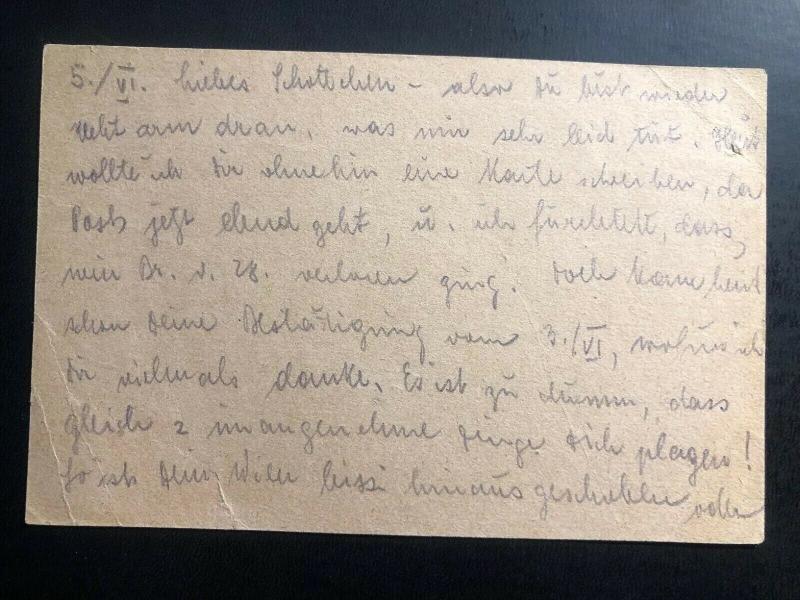 5./VI. Liebes Schottchen – also Du bist wieder
recht arm dran, was mir sehr leid tut. Heut
wollte ich Dir ohnehin eine Karte schreiben, da
Post jetzt elend geht, u. ich fürchtete, dass
mein Br. v. 28. verloren ging! Doch kam heut
schon Deine Bestätigung vom 3./VI, wofür ich
Dir vielmals danke. Es ist zu dumm, dass
gleich 2 unangenehme Dinge Dich plagen!
So ist Dein hinausgeschoben oder